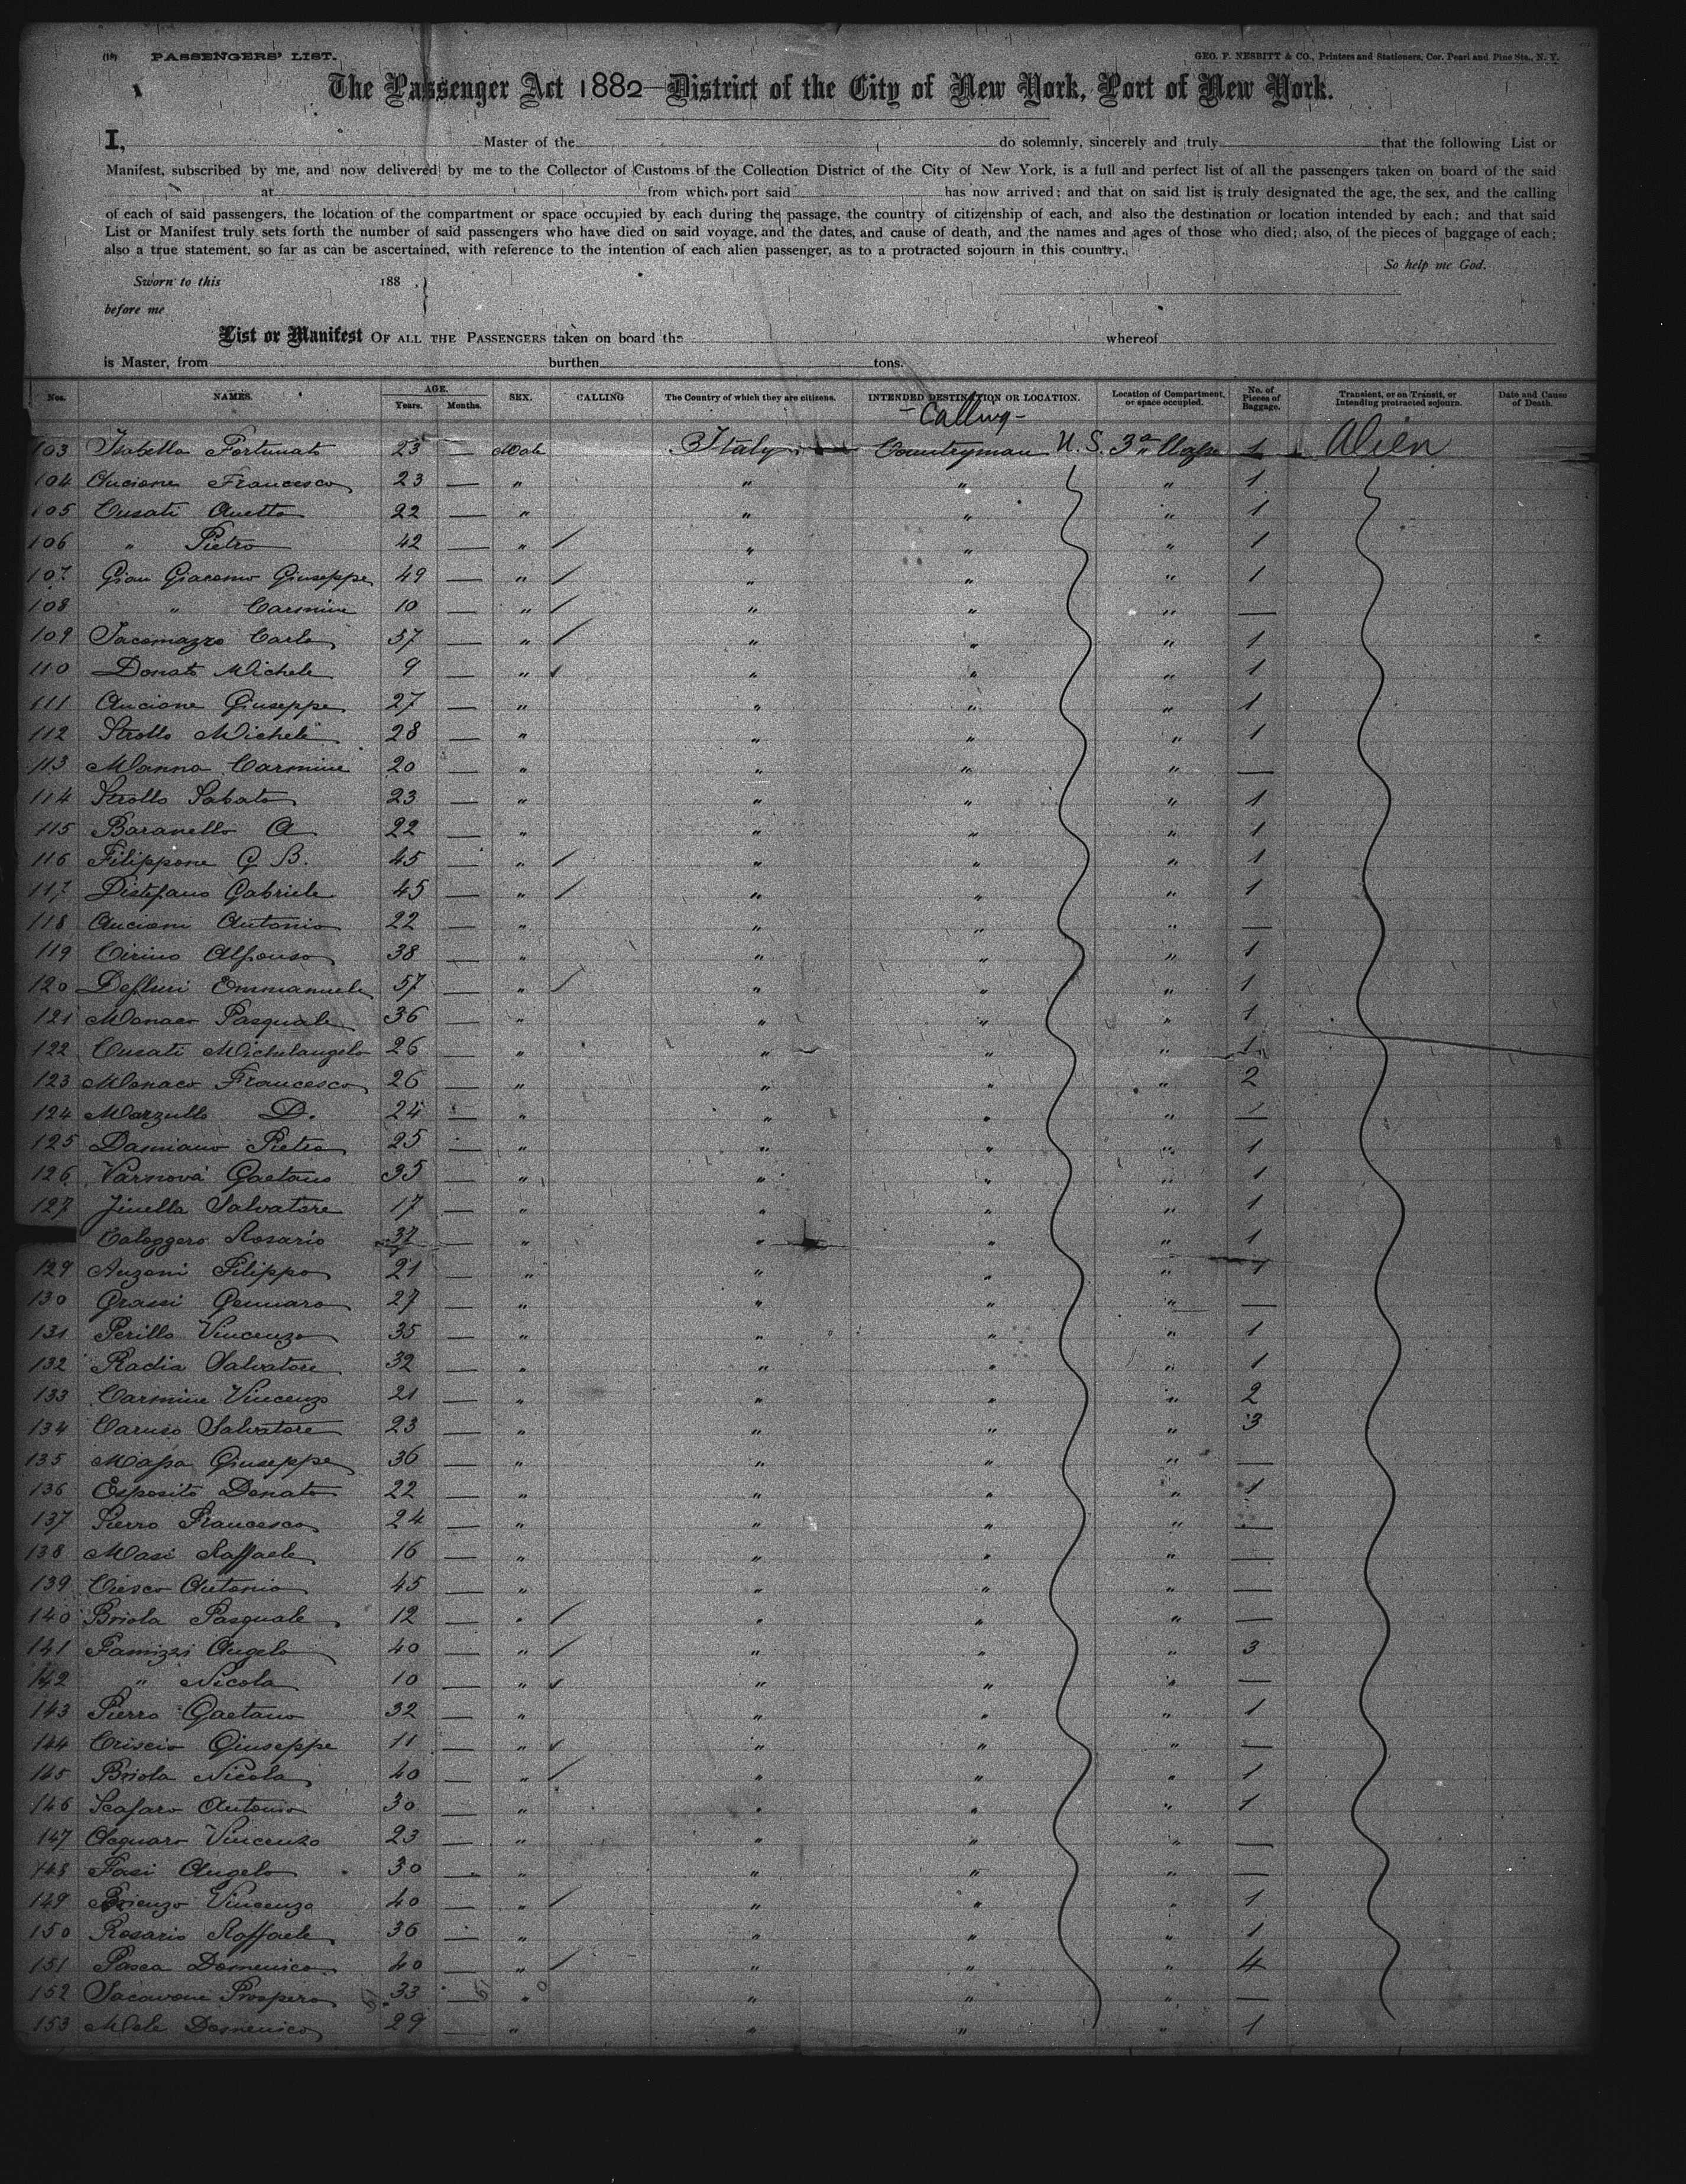 (18) PASSENGERS' LIST. GEO. F. NESBITT & CO., Printers and Stationers, Cor. Pearl and Pine Sts., N. Y.
The Passenger Act 1882 District of the City of New York, Port of New York.
I, Master of the do solemnly, sincerely and truly that the following List or
Manifest, subscribed by me, and now delivered by me to the Collector of Customs of the Collection District of the City of New York, is a full and perfect list of all the passengers taken on board of the said
at from which port said has now arrived; and that on said list is truly designated the age, the sex, and the calling
of each of said passengers, the location of the compartment or space occupied by each during the passage, the country of citizenship of each, and also the destination or location intended by each; and that said
List or Manifest truly sets forth the number of said passengers who have died on said voyage, and the dates, and cause of death, and the names and ages of those who died; also, of the pieces of baggage of each;
also a true statement, so far as can be ascertained, with reference to the intention of each alien passenger, as to a protracted sojourn in this country.
So help me God.
Sworn to this 188 .
before me
List or Manifest OF ALL THE PASSENGERS taken on board the whereof
is Master, from burthen tons.
Nos. NAMES. AGE. Years. Months. SEX. CALLING The Country of which they are citizens. INTENDED DESTINATION OR LOCATION. Location of Compartment, or space occupied. No. of Pieces of Baggage. Transient, or on Transit, or Intending protracted sojourn. Date and Cause of Death.
- Calling -
103 Isabella Fortunato 23 — Male Italy Countryman U.S. 3a Classe 1 Alien
104 Ancione Francesco 23 — " " " " 1
105 Cusati Anetto 22 — " " " " 1
106 " Pietro 42 — " / " " " 1
107 Gian Giacomo Giuseppe 49 — " / " " " 1
108 " Carmine 10 — " / " " " —
109 Iacomazzo Carlo 57 — " / " " " 1
110 Donato Michele 9 — " / " " " 1
111 Ancione Giuseppe 27 — " " " " 1
112 Strollo Michele 28 — " " " " 1
113 Manna Carmine 20 — " " " " —
114 Strollo Sabato 23 — " " " " 1
115 Baranello A 22 — " " " " 1
116 Filippone G. B. 45 — " / " " " 1
117 Distefano Gabriele 45 — " / " " " 1
118 Ancioni Antonio 22 — " " " " —
119 Cirino Alfonso 38 — " " " " 1
120 Emmanuele 57 — " / " " " 1
121 Monaco Pasquale 36 — " " " " 1
122 Cusati Michelangelo 26 — " " " " 1
123 Monaco Francesco 26 — " " " " 2
124 Marzullo D. 24 — " " " "
125 Damiano Pietro 25 — " " " " 1
126 Varnova Gaetano 35 — " " " " 1
127 Salvatore 17 — " " " " 1
Caloggero Rosario 37 — " " " " 1
129 Anzoni Filippo 21 — " " " " 1
130 Grassi Gennaro 27 — " " " " —
131 Perillo Vincenzo 35 — " " " " 1
132 Radia Salvatore 32 — " " " " 1
133 Carmine Vincenzo 21 — " " " " 2
134 Caruso Salvatore 23 — " " " " 3
135 Massa Giuseppe 36 — " " " " —
136 Esposito Donato 22 — " " " " 1
137 Pierro Francesco 24 — " " " " —
138 Masi Raffaele 16 — " " " " —
139 Antonio 45 — " " " " —
140 Briola Pasquale 12 — " / " " " —
141 Famizzi Angelo 40 — " / " " " 3
142 " Nicola 10 — " / " " " —
143 Pierro Gaetano 32 — " " " " 1
144 Criscio Giuseppe 11 — " / " " " —
145 Briola Nicola 40 — " / " " " 1
146 Scafaro Antonio 30 — " " " " 1
147 Acquaro Vincenzo 23 — " " " " —
148 Fasi Angelo 30 — " " " " —
149 Brienzo Vincenzo 40 — " / " " " 1
150 Rosario Raffaele 36 — " " " " 1
151 Pasca Domenico 40 — " / " " " 4
152 Prospero 33 — " " " " —
153 Mele Domenico 29 — " " " " 1